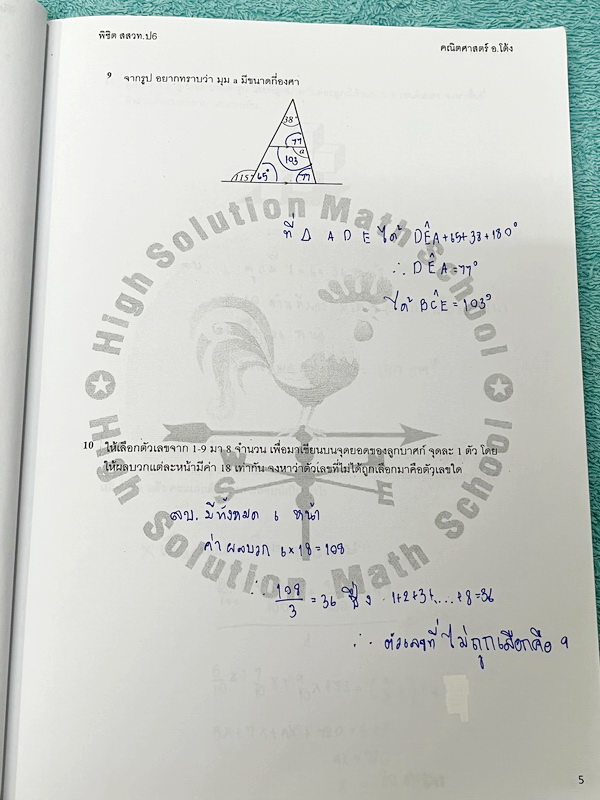 พิชิต สสวท.ป6
คณิตศาสตร์ อ.โต้ง
9 จากรูป อยากทราบว่า มุม a มีขนาดกี่องศา
38
77
a
103
115° 65° 77
ที่ △ A D E ได้ DÊA+65+38+180°
∴ DÊA=77°
ได้ BĈE=103°
10 ให้เลือกตัวเลขจาก 1-9 มา 8 จำนวน เพื่อมาเขียนบนจุดยอดของลูกบาศก์ จุดละ 1 ตัว โดย
ให้ผลบวกแต่ละหน้ามีค่า 18 เท่ากัน จงหาว่าตัวเลขที่ไม่ได้ถูกเลือกมาคือตัวเลขใด
ลบ. มีทั้งหมด 6 หน้า
ค่าผลบวก 6×18=108
∴ 108/3 = 36 ซึ่ง 1+2+3+....+8=36
∴ ตัวเลขที่ไม่ถูกเลือกคือ 9
High Solution Math School
High Solution Math School
S
E
5